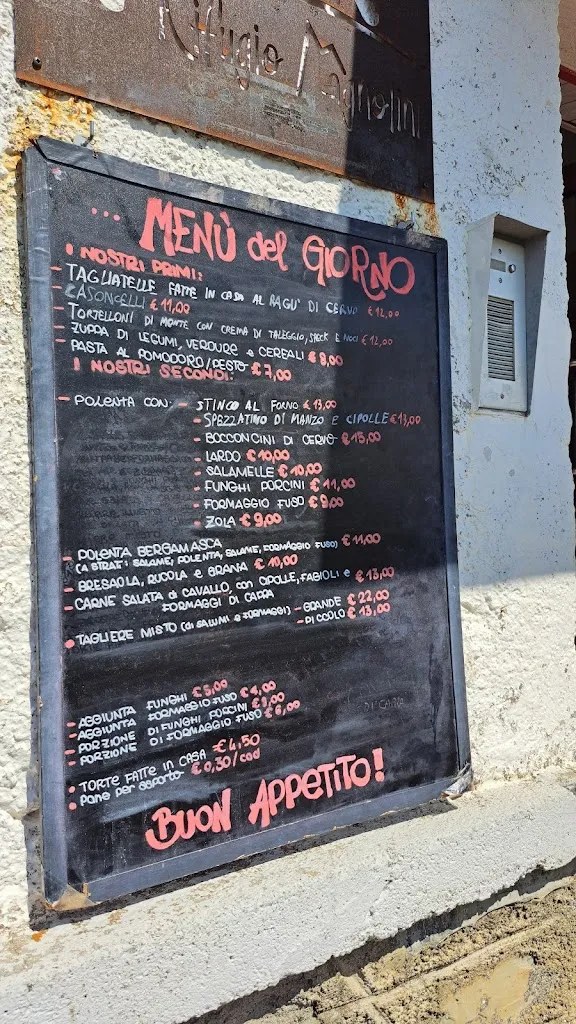 Rifugio Magnolini
... MENÙ del GIORNO
I NOSTRI PRIMI:
- TAGLIATELLE FATTE IN CASA AL RAGU' DI CERVO €12,00
- CASONCELLI €11,00
- TORTELLONI DI MONTE CON CREMA DI TALEGGIO, SPECK E NOCI €12,00
- ZUPPA DI LEGUMI, VERDURE e CEREALI €8,00
- PASTA AL POMODORO/PESTO €7,00
I NOSTRI SECONDI:
- POLENTA CON: - STINCO AL FORNO €13,00
- SPEZZATINO DI MANZO E CIPOLLE €13,00
- BOCCONCINI DI CERVO €15,00
- LARDO €10,00
- SALAMELLE €10,00
- FUNGHI PORCINI €11,00
- FORMAGGIO FUSO €9,00
- ZOLA €9,00
- POLENTA BERGAMASCA
(A STRATI: SALAME, POLENTA, SALAME, FORMAGGIO FUSO) €11,00
- BRESAOLA, RUCOLA e GRANA €10,00
- CARNE SALATA di CAVALLO, con CIPOLLE, FAGIOLI e €13,00
FORMAGGI DI CAPRA
• TAGLIERE MISTO (di SALUMI e FORMAGGI) - GRANDE €22,00
- PICCOLO €13,00
- AGGIUNTA FUNGHI €5,00
- AGGIUNTA FORMAGGIO FUSO €4,00
- PORZIONE DI FUNGHI PORCINI €8,00
- PORZIONE DI FORMAGGIO FUSO €6,00
• TORTE FATTE IN CASA €4,50
• Pane per asporto €0,30/cad
BUON APPETITO!